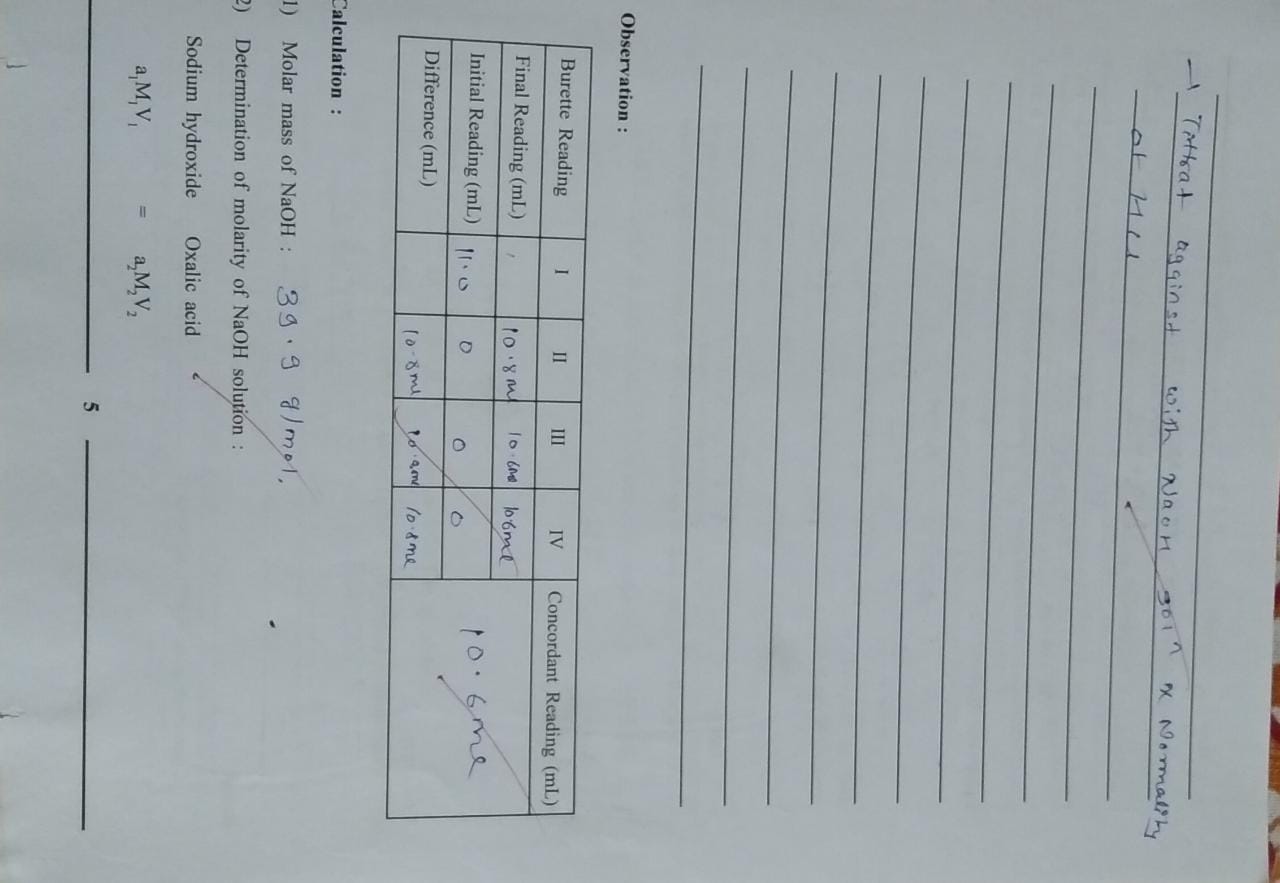 → Tittrat agginst with NaOH soln & Normality
at HCl
Observation :
Burette Reading I II III IV Concordant Reading (mL)
Final Reading (mL) 10.8 ml 10.6ml 10.6ml 10.6ml
Initial Reading (mL) 11.0 0 0 0
Difference (mL) 10.8ml 10.8ml
Calculation :
1) Molar mass of NaOH : 39.9 g/mol.
2) Determination of molarity of NaOH solution :
Sodium hydroxide Oxalic acid
a₁M₁V₁ = a₂M₂V₂
5